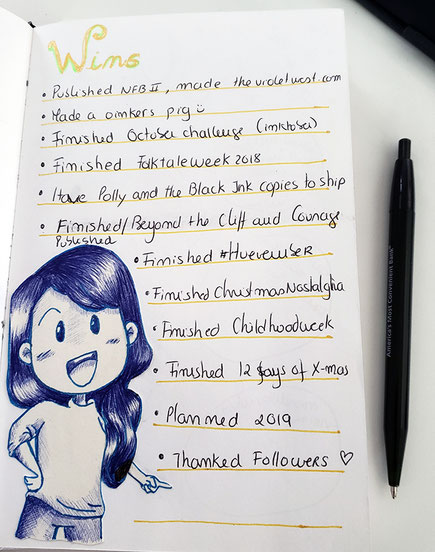 Wins
• Published NFB II, made thevioletwest.com
• Made a oinkers pig
• Finished October challenge (inktober)
• Finished Folktaleweek 2018
• Have Polly and the Black Ink copies to ship
• Finished/Beyond the Cliff and Courage
Published
• Finished #Huevember
• Finished Christmas Nostalghia
• Finished Childhoodweek
• Finished 12 days of X-mas
• Planned 2019
• Thanked Followers ♡
America's Most Convenient Bank®